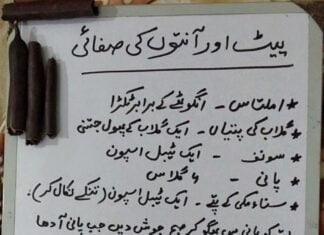 پیٹ اور آنتوں کی صفائی
* املتاس - انگوٹھے کے برابر ٹکڑا
* گلاب کی پتیاں - ایک گلاب کے پھول جتنی
* سونف - ایک ٹیبل اسپون
* پانی - ۶ گلاس
* سناء مکی کے پتے - ایک ٹیبل اسپون (تنکے نکال کر)
رات کو پانی میں بھگو کر صبح جوش دیں جب پانی آدھا